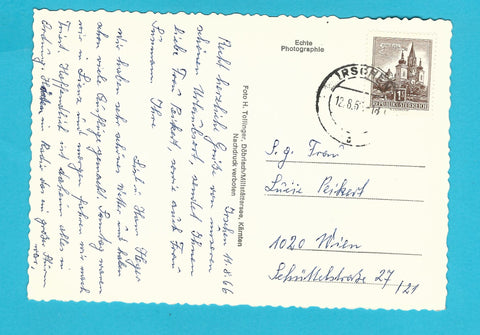 Irschen 11.8.66
Recht herzliche Grüße von unserem
schönen Urlaubsort, sendet Ihnen
liebe Frau Peikert, sowie auch Frau
Ihre
und Herr
Wir haben sehr schönes Wetter und haben
schon viele Ausflüge gemacht. Sonntag waren
wir in Lienz und morgen fahren wir nach
Hoffentlich ist daheim alles in
Ordnung
Foto H. Tollinger, Döbriach/Millstättersee, Kärnten
Nachdruck verboten
Echte
Photographie
REPUBLIK ÖSTERREICH
IRSCHEN
12.8.6
a
S. g. Frau
Luise Peikert
1020 Wien
Schüttelstraße 27
/21